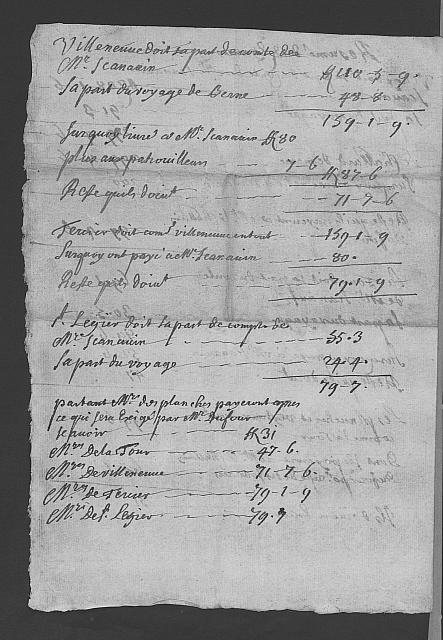 Villeneuve doit sa part de comte de
Mr. Jeanain ₶ 110-5-9.
sa part du voyage de Berne 48-8
159-1-9.
Surquoy livres a Mr. Jeanain ₶ 80
plus aux patrouilleurs 7-6
₶ 87-6
Reste quils doivt 71-7-6
Tercier doit come villeneuve entout 159-1-9
Surquoy ont payé a Mr. Jeanain 80.
Reste quils doivt 79-1-9
St. Legier doit sa part de compte de
Mr. Jeanain 55.3
sa part du voyage 24.4.
79-7.
partant Mrs. des planches payeront apres
ce qui sera Exigé par Mr. Dufour
scavoir ₶ 31
Mrs. De la Tour 47-6.
Mrs. De villeneuve 71-7-6.
Mrs. de Tercier 79-1-9
Mrs. de St. Legier 79.7